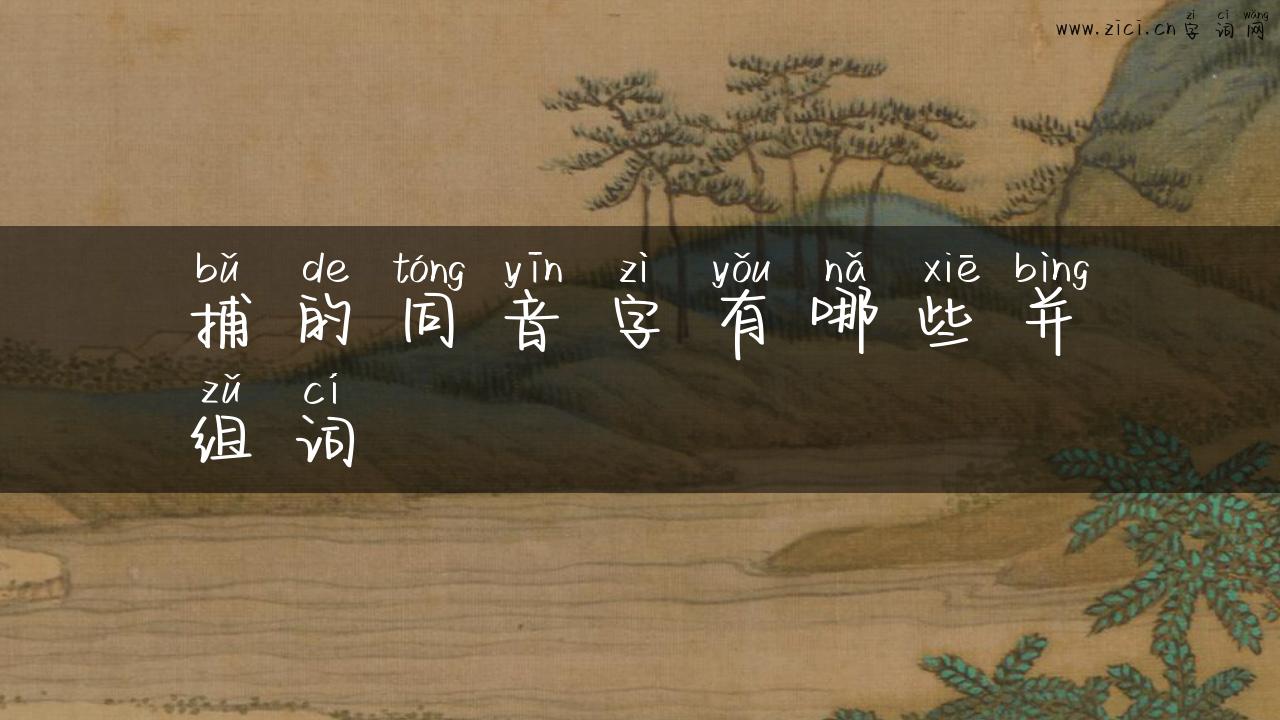 zì cí wǎng
www.zici.cn 字词网
bǔ de tóng yīn zì yǒu nǎ xiē bìng
捕的同音字有哪些并
zǔ cí
组词